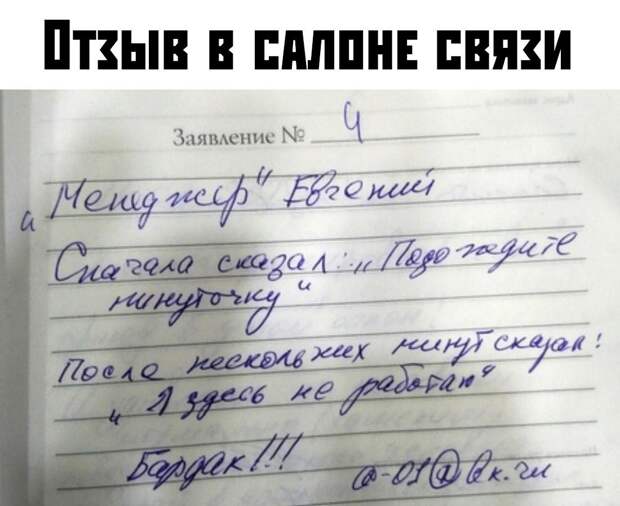 Отзыв в салоне связи
Заявление № 4
„Менеджер“ Евгений
Сначала сказал: „Подождите
минуточку“
После нескольких минут сказал:
„Я здесь не работаю“
Бардак!!!